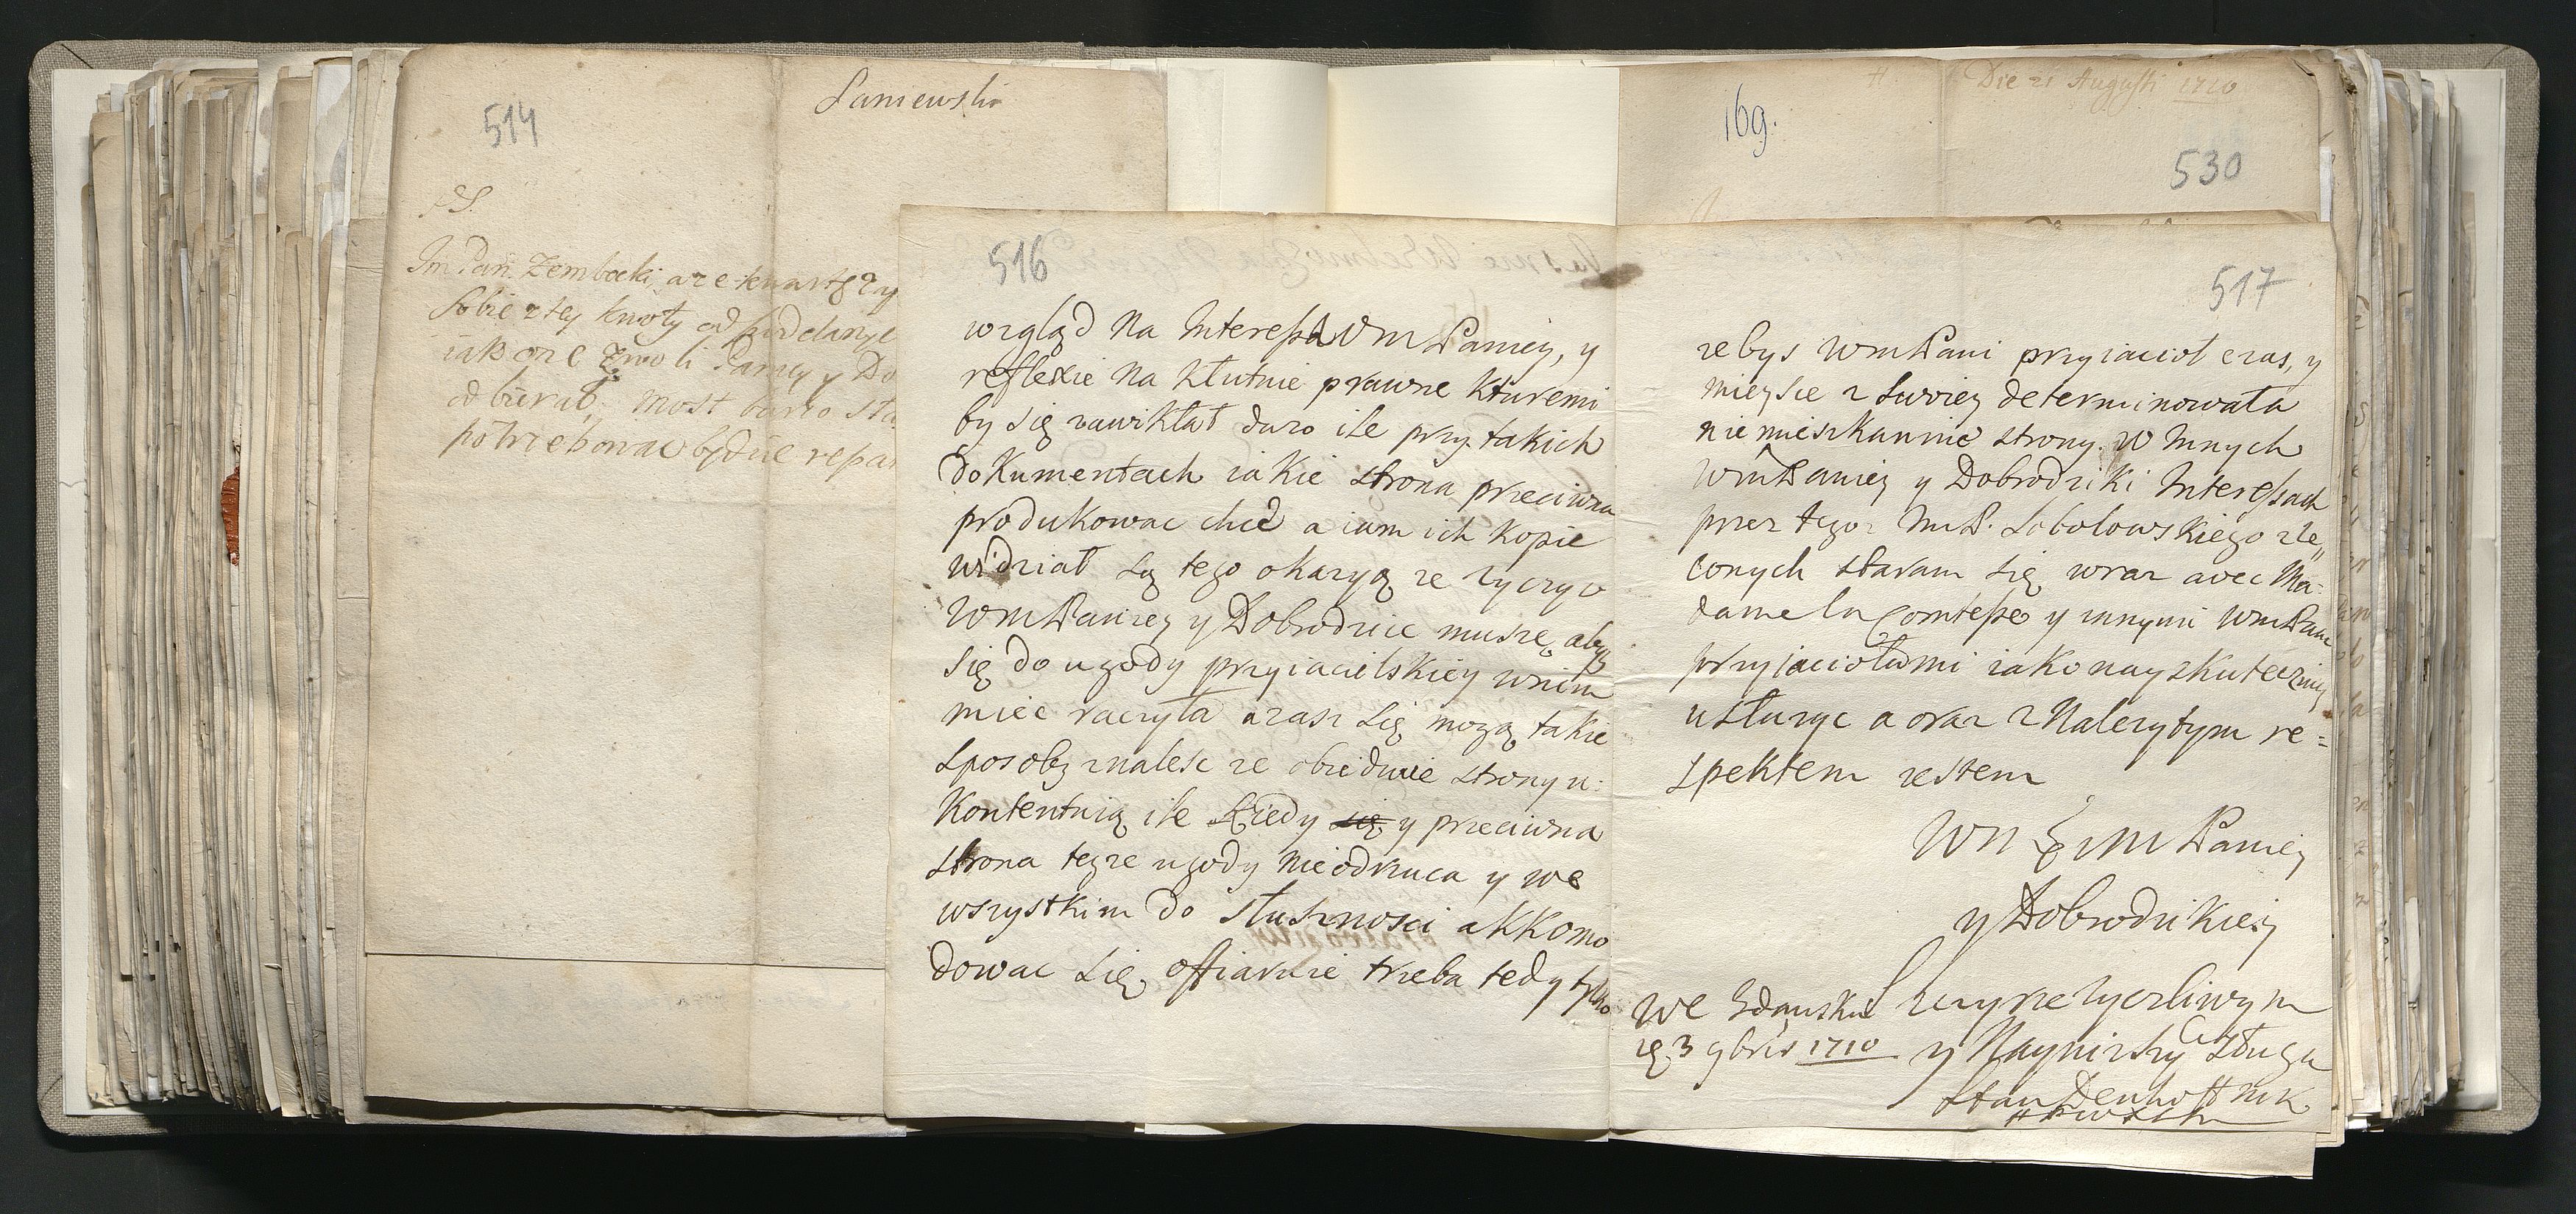 514
Łaniewski
PS.
Im Pan Zembocki, arekwart
sobie z tey kwoty od
iak one zwoli Paniey y Do
odbierał, Most barzo sta
potrzebowac będzie repar
169.
Die 21 Augusti 1710
530
516
wzgląd na Interessa WM Paniey, y
reflexie na kłutnie prawne kturemi
by się zawikłał duzo ile przy takich
dokumentach iakie strona przeciwna
produkowac chce a iam ich kopie
widział są tego okazyą ze zyczyc
WMPaniey y Dobrodzice muszę, abyś
się do ugody przyiacielskiey wnim
miec raczyła azasz się mogą takie
sposoby znalesc ze obiedwie strony u:
kontentuią ile kiedy się y przeciwna
strona teyze ugody nieodrzuca y we
wszystkim do słusznosci akkomo
dowac się offiaruie trzeba tedy tylko
517
zebys WMPani przyiacioł czas, y
mieysce z swoiey determinowała
nie mieszkannie strony. W Innych
WMPaniey y Dobrodziki Interessach
przez tegoz ImP. Sobolowskiego zle„
conych staram się wraz avec Ma:
dame la Comtesse y innymi WMPani
przyjaciołami iako nayskuteczniey
usłuzyc a oraz z Nalezytym re=
spektem iestem
WM MM Paniey
y Dobrodzikiey
We Gdansku
Szczyrze zyczliwym
ię 3 9bris 1710
y Naynizszy Sługa
Stan Denhoff MK